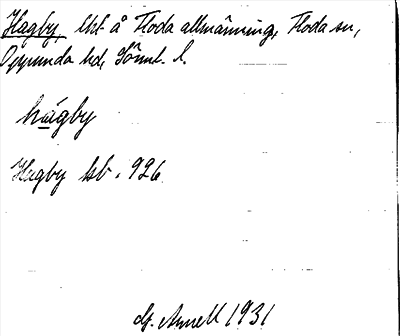 Hagby lht å Floda allmänning, Floda sn,
Oppunda hd, Sörml. l.
hágby
Hagby kb. 926
af. Anell 1931